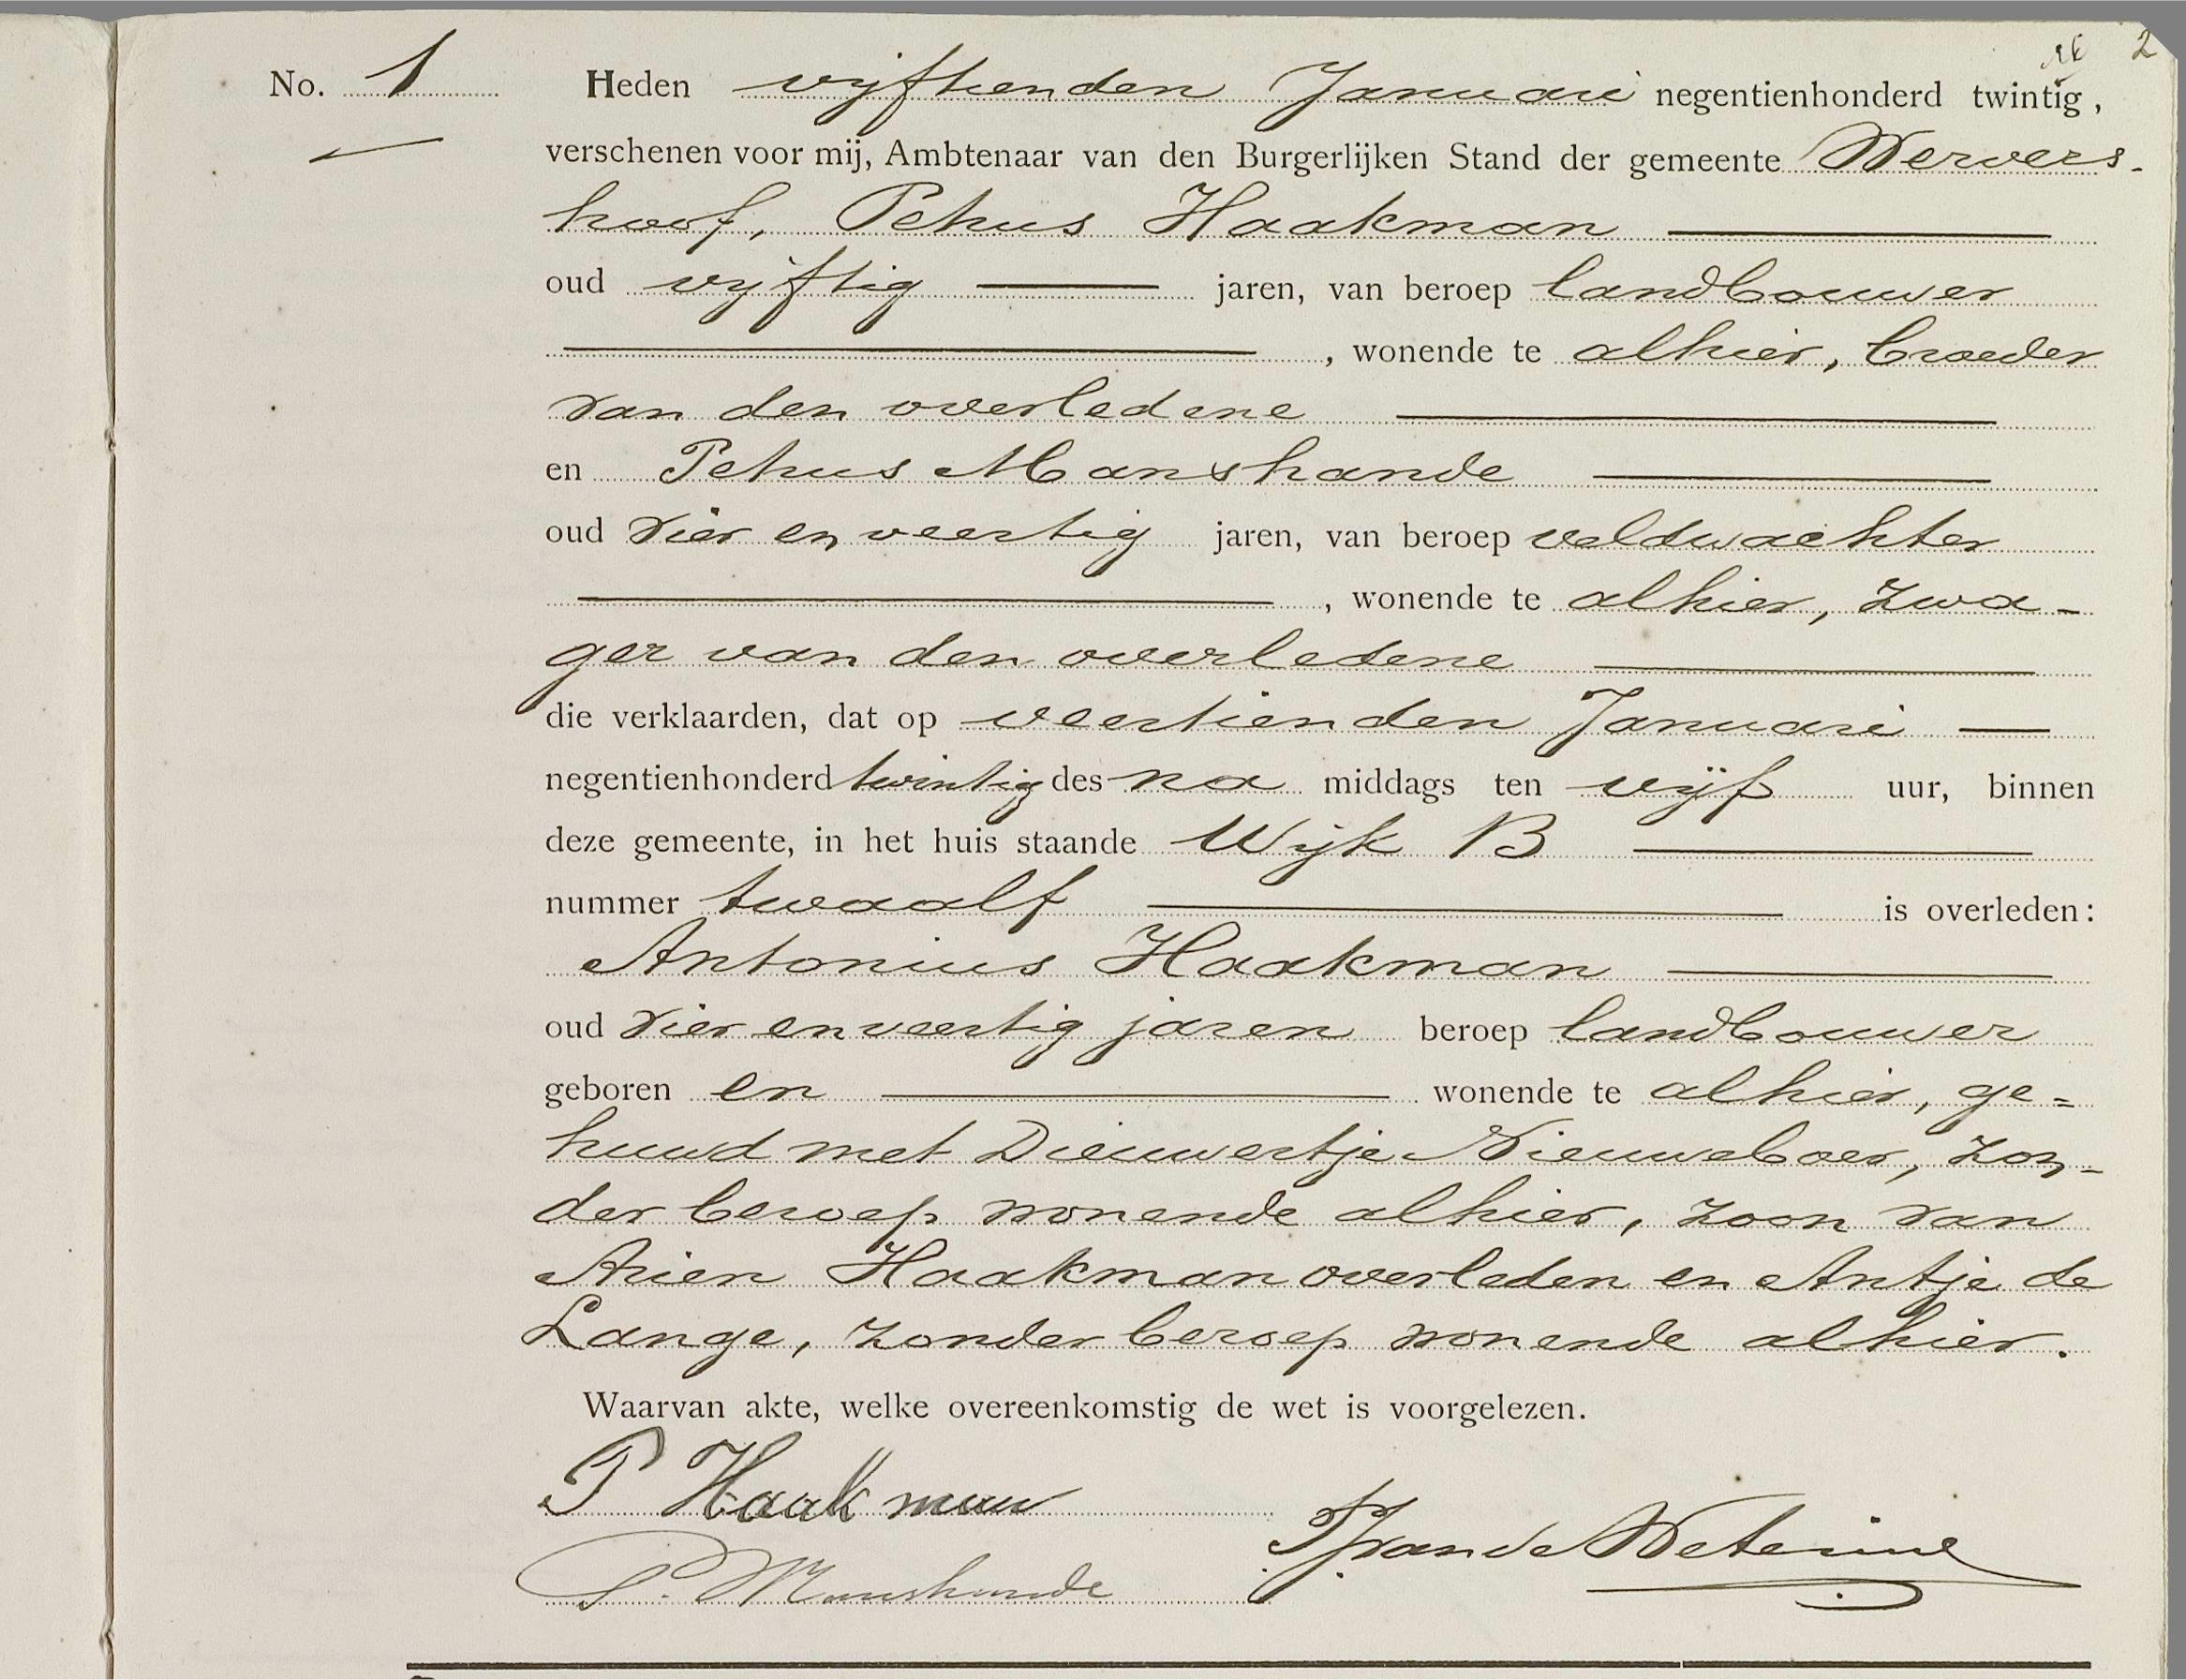 2
No. 1 Heden vijftienden Januari negentienhonderd twintig,
verschenen voor mij, Ambtenaar van den Burgerlijken Stand der gemeente Wervers-
hoof, Petrus Haakman
oud vijftig jaren, van beroep landbouwer
, wonende te alhier, broeder
van den overledene
en Petrus Manshande
oud vier en veertig jaren, van beroep veldwachter
, wonende te alhier, zwa-
ger van den overledene
die verklaarden, dat op veertienden Januari
negentienhonderd twintig des na middags ten vijf uur, binnen
deze gemeente, in het huis staande Wijk B
nummer twaalf is overleden:
Antonius Haakman
oud vier en veertig jaren beroep landbouwer
geboren en wonende te alhier, ge=
huwd met Dieuwertje Nieuweboer, zon-
der beroep wonende alhier, zoon van
Arien Haakman overleden en Antje de
Lange, zonder beroep wonende alhier.
Waarvan akte, welke overeenkomstig de wet is voorgelezen.
P Haakman
P. Manshande